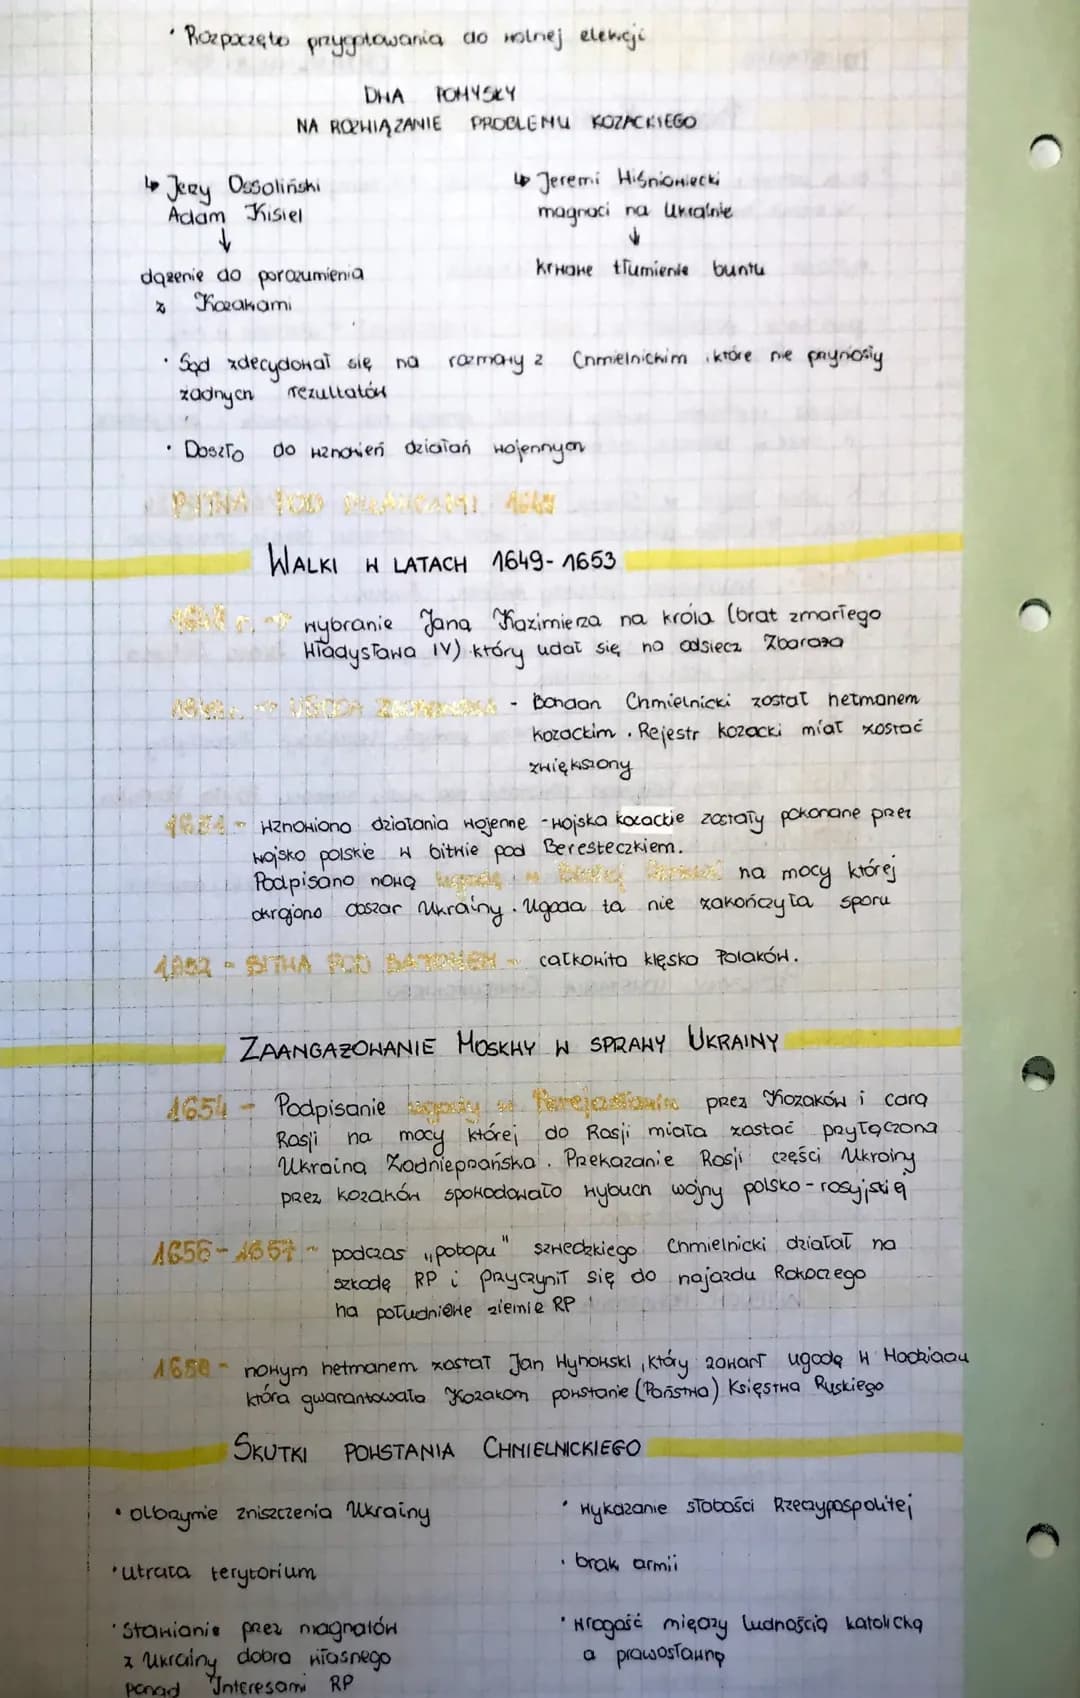 · Rozpoczęto przygotowania do wolnej elekcji
DWA POMYSŁY
NA ROZWIĄZANIE PROBLEMU KOZACKIEGO
↳ Jerzy Ossoliński
Adam Kisiel
↓
dążenie do porozumienia
z Kozakami
↳ Jeremi Wiśniowiecki
magnaci na Ukrainie
↓
krwawe tłumienie buntu
· Sąd zdecydował się na rozmowy z Chmielnickim, które nie przyniosły
żadnych rezultatów
· Doszło do wznowień działań wojennych
BITWA POD PIŁAWCAMI 1648
WALKI W LATACH 1649-1653
1648 r. → wybranie Jana Kazimierza na króla (brat zmarłego
Władysława IV) który udał się na odsiecz Zbaraża
1649 r. → UGODA ZBOROWSKA - Bohdan Chmielnicki został hetmanem
kozackim. Rejestr kozacki miał zostać
zwiększony
1651 - wznowiono działania wojenne - wojska kozackie zostały pokonane przez
wojsko polskie w bitwie pod Beresteczkiem.
Podpisano nową ugodę w Białej Cerkwi na mocy której
okrojono obszar Ukrainy. Ugoda ta nie zakończyła sporu
1652 - BITWA POD BATOHEM - całkowita klęska Polaków.
ZAANGAŻOWANIE MOSKWY W SPRAWY UKRAINY
1654 - Podpisanie ugody w Perejasławiu przez Kozaków i cara
Rosji na mocy której do Rosji miała zostać przyłączona
Ukraina Zadnieprzańska. Przekazanie Rosji części Ukrainy
przez kozaków spowodowało wybuch wojny polsko-rosyjskiej
1656-1657 - podczas „potopu" szwedzkiego Chmielnicki działał na
szkodę RP i przyczynił się do najazdu Rakoczego
na południowe ziemie RP
1658 - nowym hetmanem został Jan Wyhowski, który zawarł ugodę w Hadziaczu
która gwarantowała Kozakom powstanie (Państwa) Księstwa Ruskiego
SKUTKI POWSTANIA CHMIELNICKIEGO
· olbrzymie zniszczenia Ukrainy
· utrata terytorium
· Stawianie przez magnatów
z Ukrainy dobra własnego
ponad Interesami RP
· wykazanie słabości Rzeczypospolitej
· brak armii
· wrogość między ludnością katolicką
a prawosławną